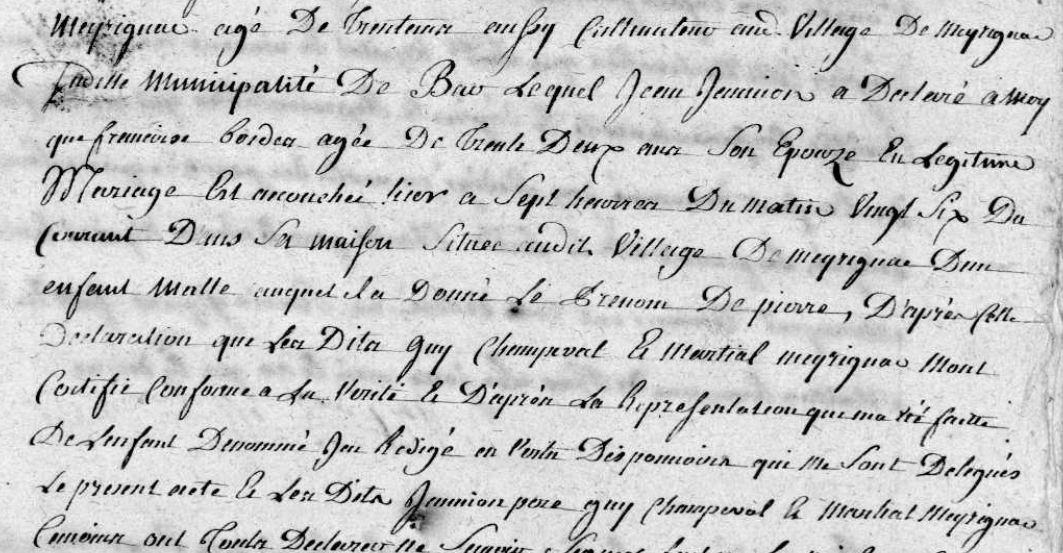 meyrignac agé De trentans aussy Cultivateur aud. Village De meyrignac
Susditte Municipalité De Bar Lequel Jean Jeunion a Declaré a moy
que francoise bordes agée De trente Deux ans Son Epouze En Legitime
Mariage Est acouchée hier a Sept heurres Du matin Vingt Six Du
Courant Dans Sa maison Située audit Village De meyrignac Dun
enfant Malle auquel il a Donné Le Prenom De pierre, D'après Cette
Declaration que Les Dits Guy Champeval Et Martial meyrignac Mont
Certifié Conforme a La Verité Et D'après La Representation qui ma été faitte
De Lenfant Denommé Jay Redigé en Vertu Des pouvoirs qui me Sont Delegués
Le present acte Et Les Dits Jeunion pere guy Champeval Et Martial Meyrignac
temoins ont touts Declaré ne Scavoir Signer